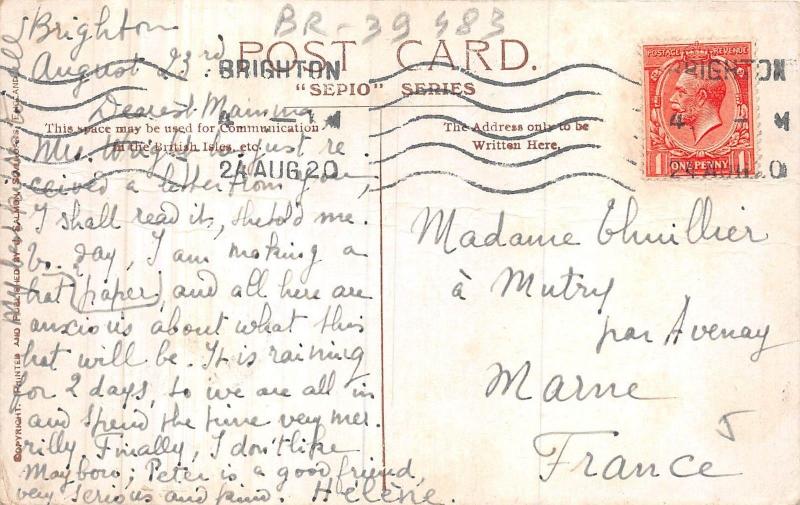 BR-39483
Brighton
August 23rd
POST CARD.
"SEPIO" SERIES
BRIGHTON
24 AUG 20
Dearest Mamma
This space may be used for Communication
in the British Isles, etc.
The Address only to be
Written Here.
Mrs. just re
ceived a letter from you,
I shall read it, she told me.
To day, I am making a
hat (paper) and all here are
anxious about what this
hat will be. It is raining
for 2 days, so we are all in
and spend the time very mer
rilly. Finally, I don't like
; Peter is a good friend,
very serious and kind. Hélène.
Madame Thuillier
à Mutry
par Avenay
Marne
France
POSTAGE REVENUE
1 ONE PENNY 1
BRIGHTON
COPYRIGHT. PRINTED AND PUBLISHED BY J. SALMON, SEVENOAKS, ENGLAND